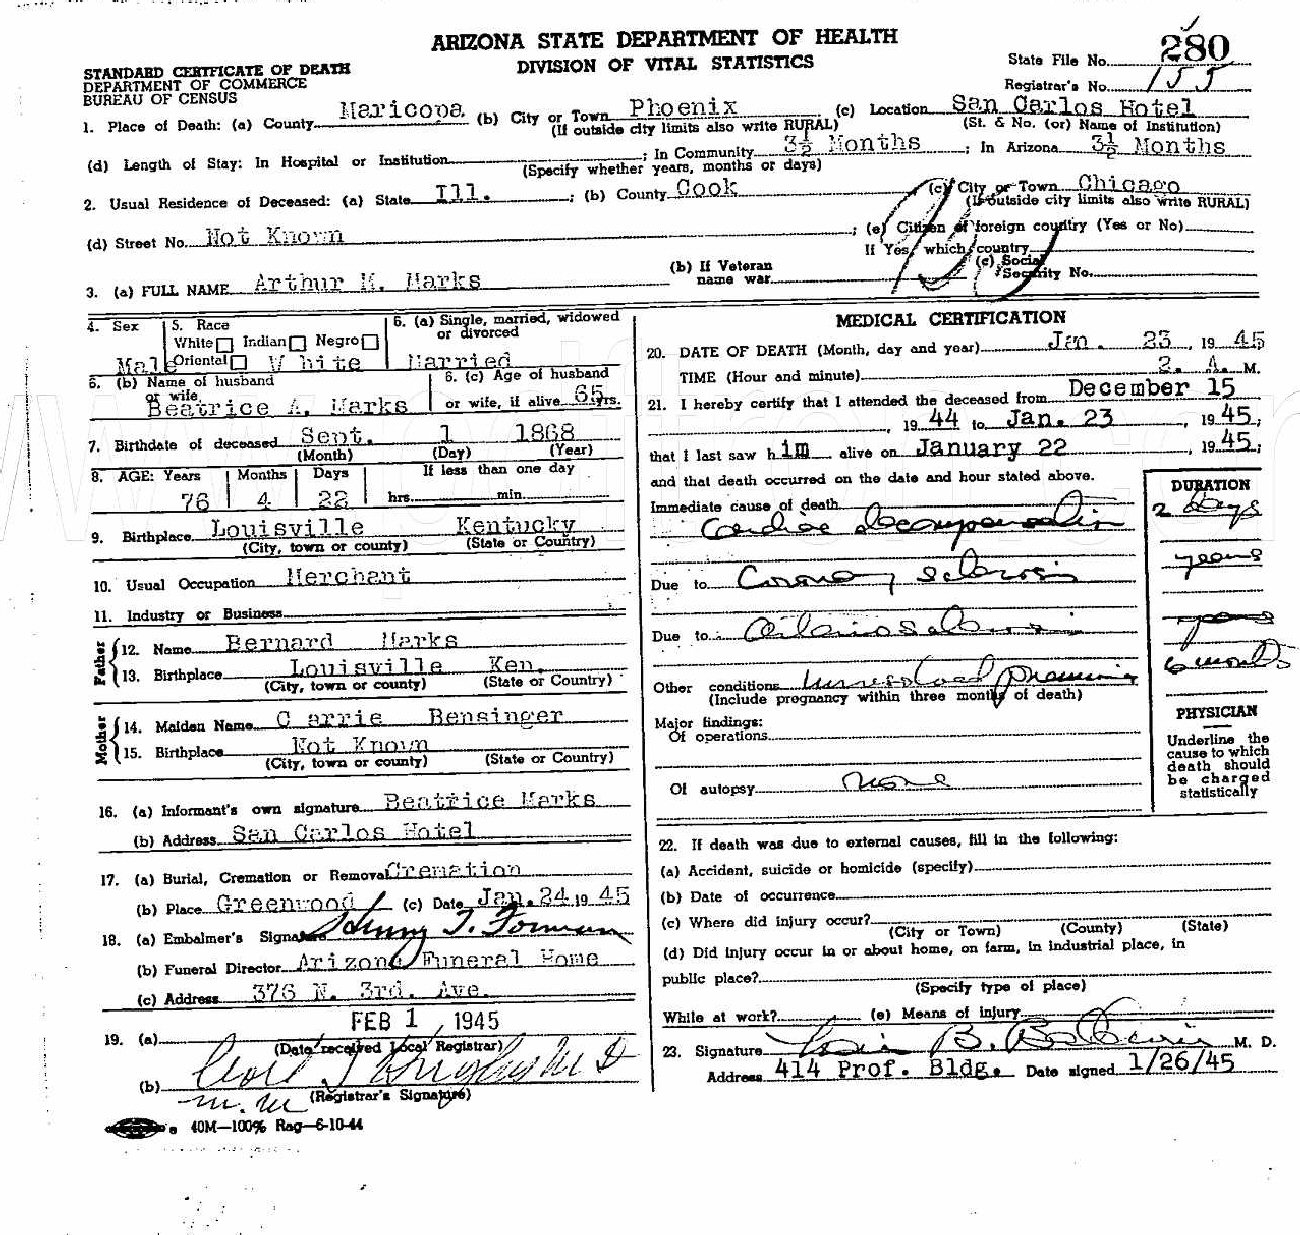 ARIZONA STATE DEPARTMENT OF HEALTH
DIVISION OF VITAL STATISTICS
State File No. 280
Registrar's No. 155
STANDARD CERTIFICATE OF DEATH
DEPARTMENT OF COMMERCE
BUREAU OF CENSUS
1. Place of Death: (a) County Maricopa (b) City or Town Phoenix (c) Location San Carlos Hotel
(If outside city limits also write RURAL) (St. & No. (or) Name of Institution)
(d) Length of Stay: In Hospital or Institution ; In Community 3½ Months ; In Arizona 3½ Months
(Specify whether years, months or days)
2. Usual Residence of Deceased: (a) State Ill. ; (b) County Cook (c) City or Town Chicago
(If outside city limits also write RURAL)
(d) Street No. Not Known ; (e) Citizen of foreign country (Yes or No)
If Yes, which country
3. (a) FULL NAME Arthur M. Marks (b) If Veteran name war (c) Social Security No.
4. Sex Male
5. Race White Indian Negro Oriental White
6. (a) Single, married, widowed or divorced Married
6. (b) Name of husband or wife Beatrice A. Marks
6. (c) Age of husband or wife, if alive 65 yrs.
7. Birthdate of deceased Sept. 1 1868
(Month) (Day) (Year)
8. AGE: Years Months Days If less than one day
76 4 22 hrs. min.
9. Birthplace Louisville Kentucky
(City, town or county) (State or Country)
10. Usual Occupation Merchant
11. Industry or Business
Father
12. Name Bernard Marks
13. Birthplace Louisville Ken.
(City, town or county) (State or Country)
Mother
14. Maiden Name Carrie Bensinger
15. Birthplace Not Known
(City, town or county) (State or Country)
16. (a) Informant's own signature Beatrice Marks
(b) Address San Carlos Hotel
17. (a) Burial, Cremation or Removal Cremation
(b) Place Greenwood (c) Date Jan. 24 19 45
18. (a) Embalmer's Signature Henry T. Forman
(b) Funeral Director Arizona Funeral Home
(c) Address 376 N. 3rd. Ave.
19. (a) FEB 1, 1945
(Date received Local Registrar)
(b)
(Registrar's Signature)
40M—100% Rag—6-10-44
MEDICAL CERTIFICATION
20. DATE OF DEATH (Month, day and year) Jan. 23, 19 45
TIME (Hour and minute) 2. A. M.
21. I hereby certify that I attended the deceased from December 15
, 19 44 to Jan. 23, 19 45;
that I last saw him alive on January 22, 19 45;
and that death occurred on the date and hour stated above.
DURATION
Immediate cause of death Cardiac Decompensation 2 days
Due to Coronary sclerosis years
Due to Arteriosclerosis years
Other conditions unresolved pneumonia 6 months
(Include pregnancy within three months of death)
Major findings:
Of operations
Of autopsy none
PHYSICIAN
Underline the
cause to which
death should
be charged
statistically
22. If death was due to external causes, fill in the following:
(a) Accident, suicide or homicide (specify)
(b) Date of occurrence
(c) Where did injury occur?
(City or Town) (County) (State)
(d) Did injury occur in or about home, on farm, in industrial place, in
public place?
(Specify type of place)
While at work? (e) Means of injury
23. Signature M. D.
Address 414 Prof. Bldg. Date signed 1/26/45